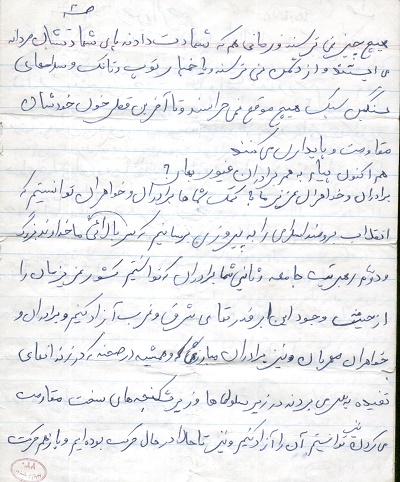 ص ۲
هیچ چیز نمی ترسند و زمانی هم که شهادت دادند پای شهادتشان مردانه
می ایستند و از دشمن نمی ترسند و با خمپاره توپ و تانک و سلاحهای
سنگین سبک هیچ موقع نمی هراسند و تا آخرین قطره خون خودشان
مقاومت و پایداری می کنند
هم اکنون پیام به همه برادران غیور
برادران و خواهران عزیز ما با کمک شما برادران و خواهران توانستیم که
انقلاب اسلامی را به پیروزی برسانیم که رهنمای ما خداوند بزرگ
و دوم رهبریت جامعه و ثانی شما برادران که توانستیم کشور عزیزمان را
از وجود این ابرقدرتهای شرق و غرب آزاد کنیم و برادران و
خواهران مهربان و نیز برادران مبارز همیشه در صحنه که در زندانهای
بسر می بردند در زیر سلولها و زیر شکنجه های سخت مقاومت
می کردند توانستیم آن را آزاد کنیم و نیز تا حالا در حال حرکت بوده ایم و باز هم حرکت